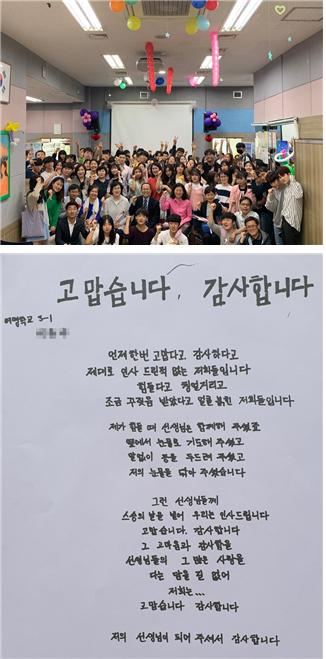 고맙습니다, 감사합니다
여명학교 3-1
언제한번 고맙다고 감사하다고
제대로 인사 드린적 없는 저희들입니다
힘들다고 찡얼거리고
조금 꾸짖음 받았다고 얼굴 붉힌 저희들입니다
제가 힘들 때 선생님은 함께해 주셨고
옆에서 눈물로 기도해 주셨고
말없이 등을 두드려 주셨고
저의 눈물을 닦아 주셨습니다
그런 선생님들께
스승의 날을 빌어 우리는 인사드립니다
고맙습니다. 감사합니다
그 고마움과 감사함을
선생님들의 그 많은 사랑을
다는 담을 길 없어
저희는...
고맙습니다 감사합니다
저의 선생님이 되어 주셔서 감사합니다